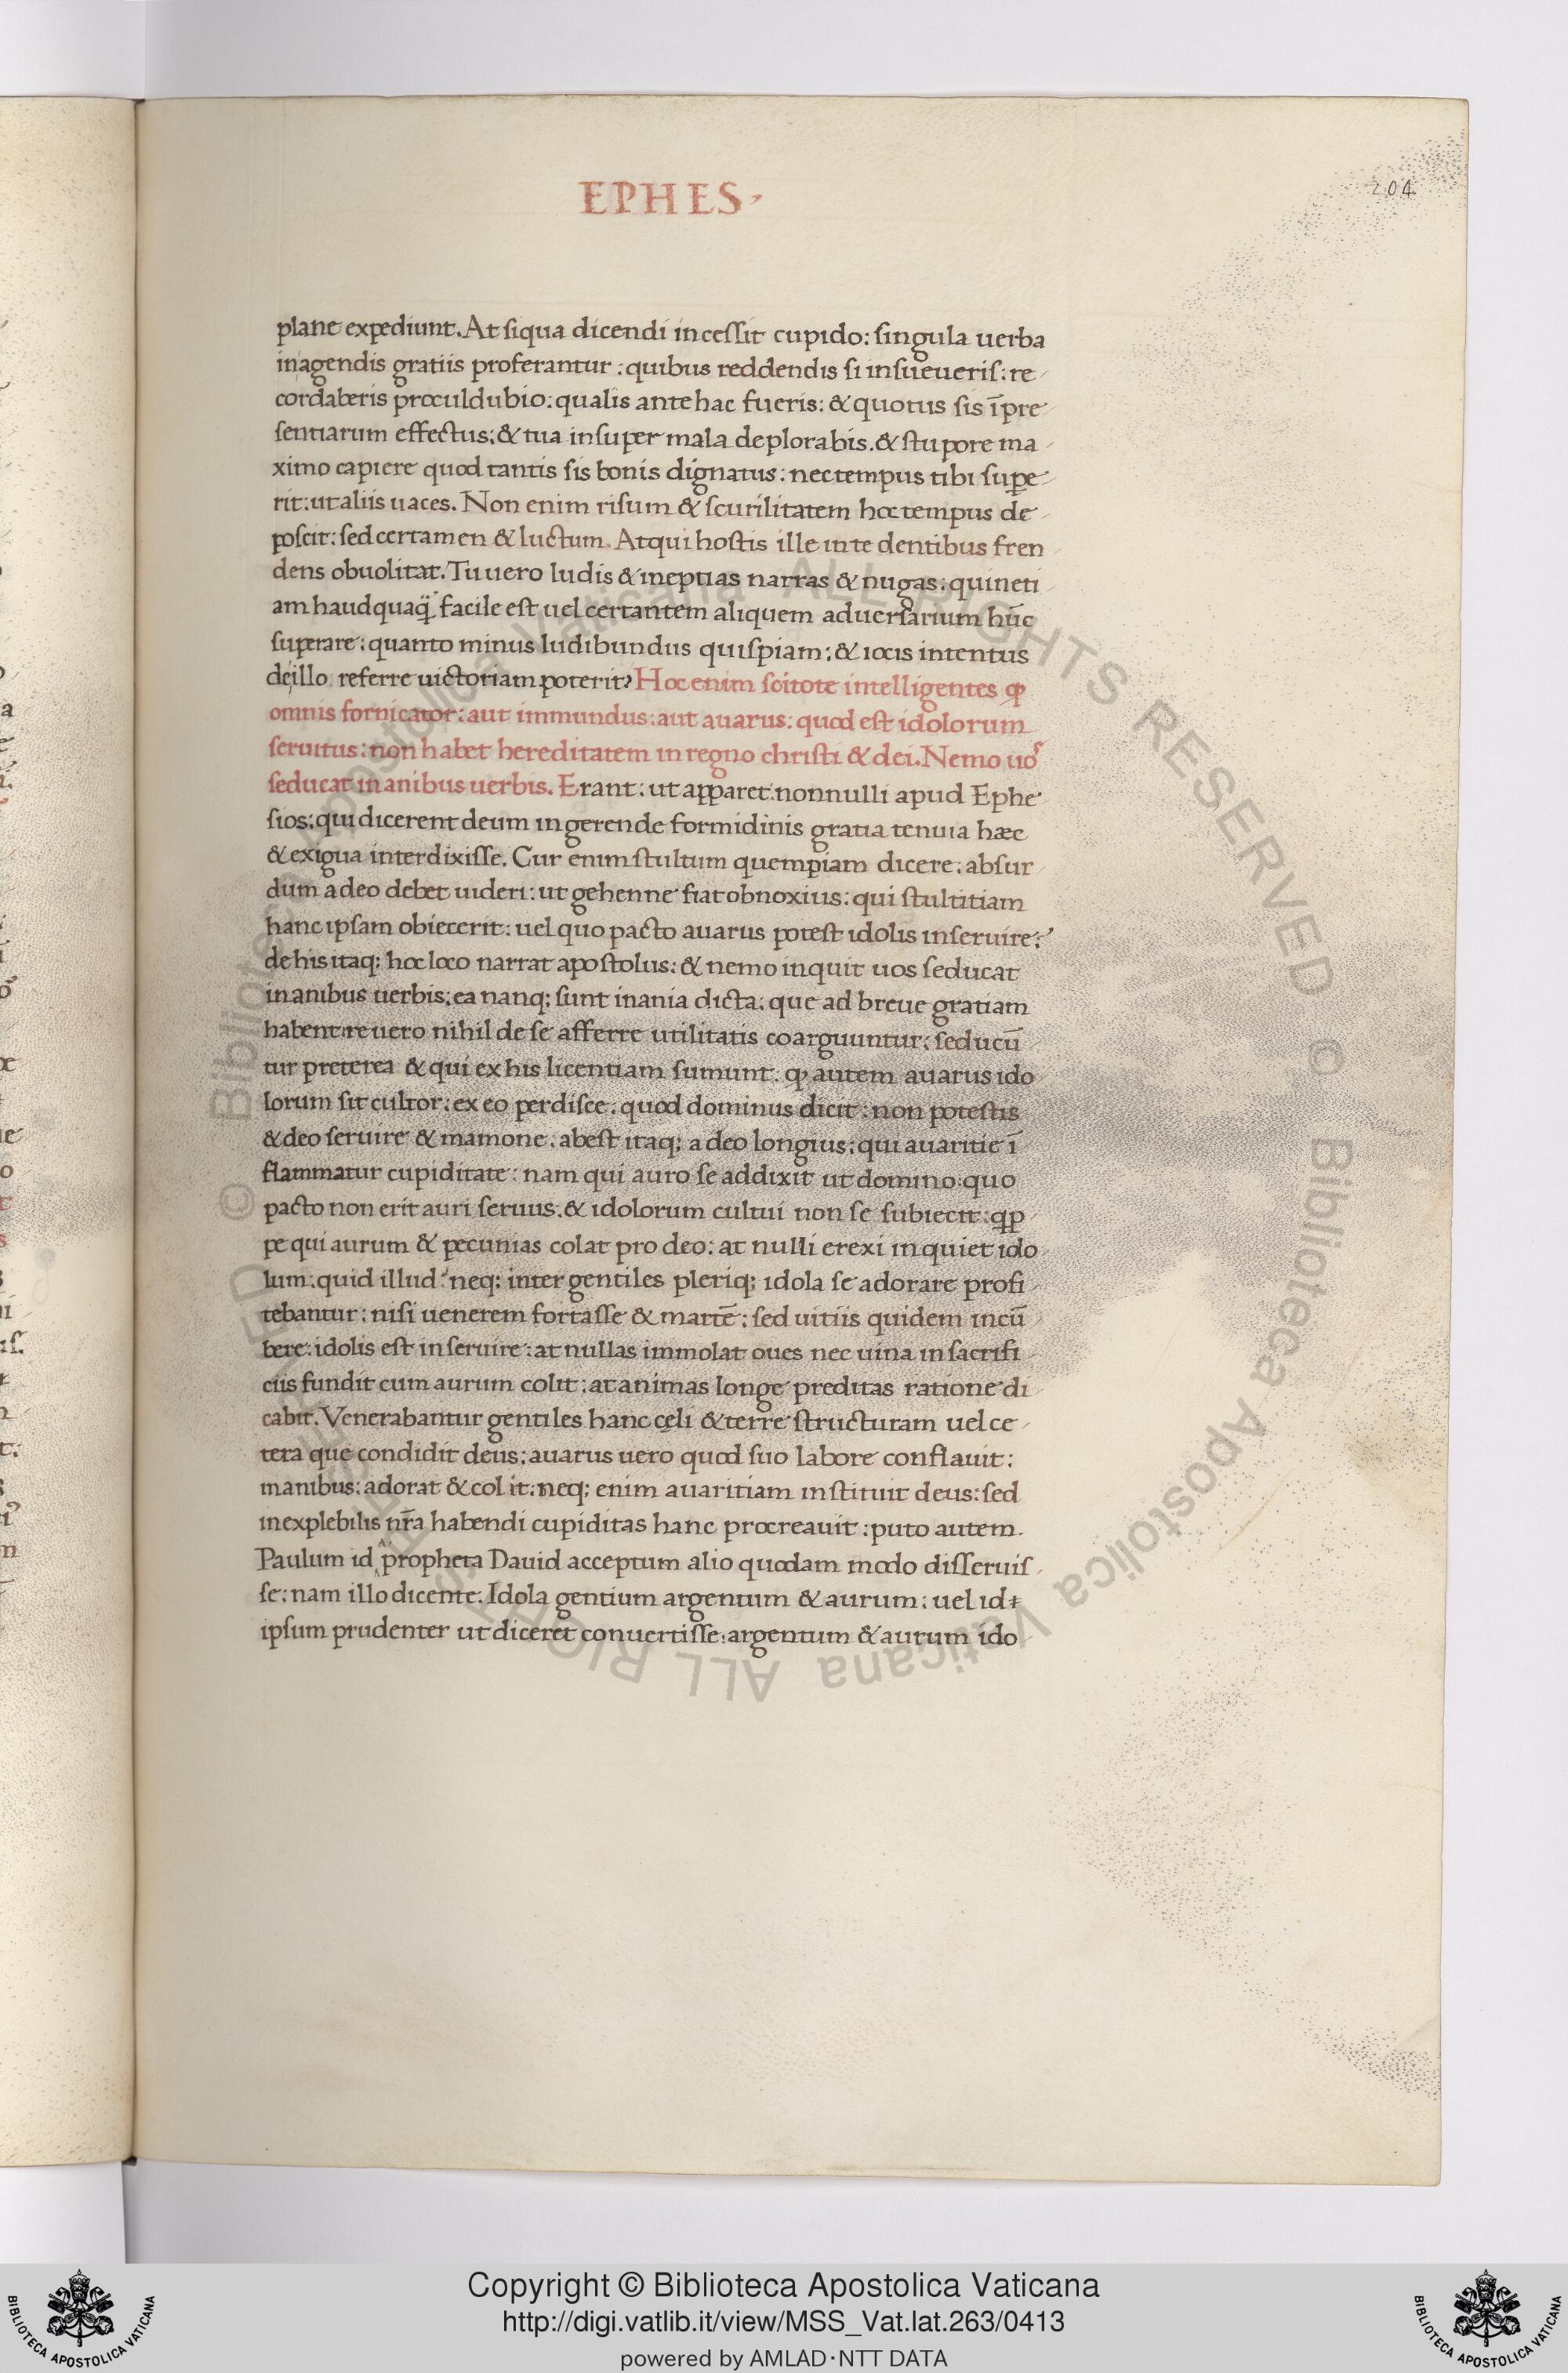 EPHES
204
plane expediunt. At siqua dicendi incessit cupido: singula uerba
inagendis gratiis proferantur: quibus reddendis si insueueris: re
cordaberis proculdubio: qualis antehac fueris: & quotus sis ī pre
sentiarum effectus: & tua insuper mala deplorabis. & stupore ma
ximo capiere quod tantis sis bonis dignatus: nec tempus tibi supe
rit: ut aliis uaces. Non enim risum & scurilitatem hoc tempus de
poscit: sed certamen & luctum. Atqui hostis ille inte dentibus fren
dens obuolitat. Tu uero ludis & ineptias narras & nugas: quineti
am haudquaq̃ facile est uel certantem aliquem aduersarium hūc
superare: quanto minus ludibundus quispiam: & iocis intentus
de illo referre uictoriam poterit? Hoc enim scitote intelligentes ꝙ
omnis fornicator: aut immundus: aut auarus: quod est idolorum
seruitus: non habet hereditatem in regno christi & dei. Nemo uos
seducat inanibus uerbis. Erant: ut apparet: nonnulli apud Ephe
sios: qui dicerent deum ingerende formidinis gratia tenuia hæc
& exigua interdixisse. Cur enim stultum quempiam dicere: absur
dum adeo debet uideri: ut gehenne fiat obnoxius: qui stultitiam
hanc ipsam obiecerit: uel quo pacto auarus potest idolis inseruire?
de his itaq; hoc loco narrat apostolus: & nemo inquit uos seducat
inanibus uerbis: ea nanq; sunt inania dicta: que ad breue gratiam
habent: re uero nihil de se afferre utilitatis coarguuntur: seducū
tur preterea & qui ex his licentiam sumunt. ꝙ autem auarus ido
lorum sit cultor: ex eo perdisce: quod dominus dicit: non potestis
& deo seruire & mamone: abest itaq; a deo longius: qui auaritie ī
flammatur cupiditate: nam qui auro se addixit ut domino: quo
pacto non erit auri seruus. & idolorum cultui non se subiecit: qp̄
pe qui aurum & pecunias colat pro deo: at nulli erexi inquiet ido
lum: quid illud? neq; inter gentiles pleriq; idola se adorare profi
tebantur: nisi uenerem fortasse & martē: sed uitiis quidem incū
bere: idolis est inseruire: at nullas immolat oues nec uina in sacrifi
ciis fundit cum aurum colit: at animas longe preditas ratione di
cabit. Venerabantur gentiles hanc cęli & terre structuram uel ce
tera que condidit deus: auarus uero quod suo labore conflauit:
manibus: adorat & colit: neq; enim auaritiam instituit deus: sed
inexplebilis nr̄a habendi cupiditas hanc procreauit: puto autem
Paulum id a propheta Dauid acceptum alio quodam modo disseruis
se: nam illo dicente: Idola gentium argentum & aurum: uel id
ipsum prudenter ut diceret conuertisse: argentum & aurum ido
Copyright © Biblioteca Apostolica Vaticana
http://digi.vatlib.it/view/MSS_Vat.lat.263/0413
powered by AMLAD·NTT DATA